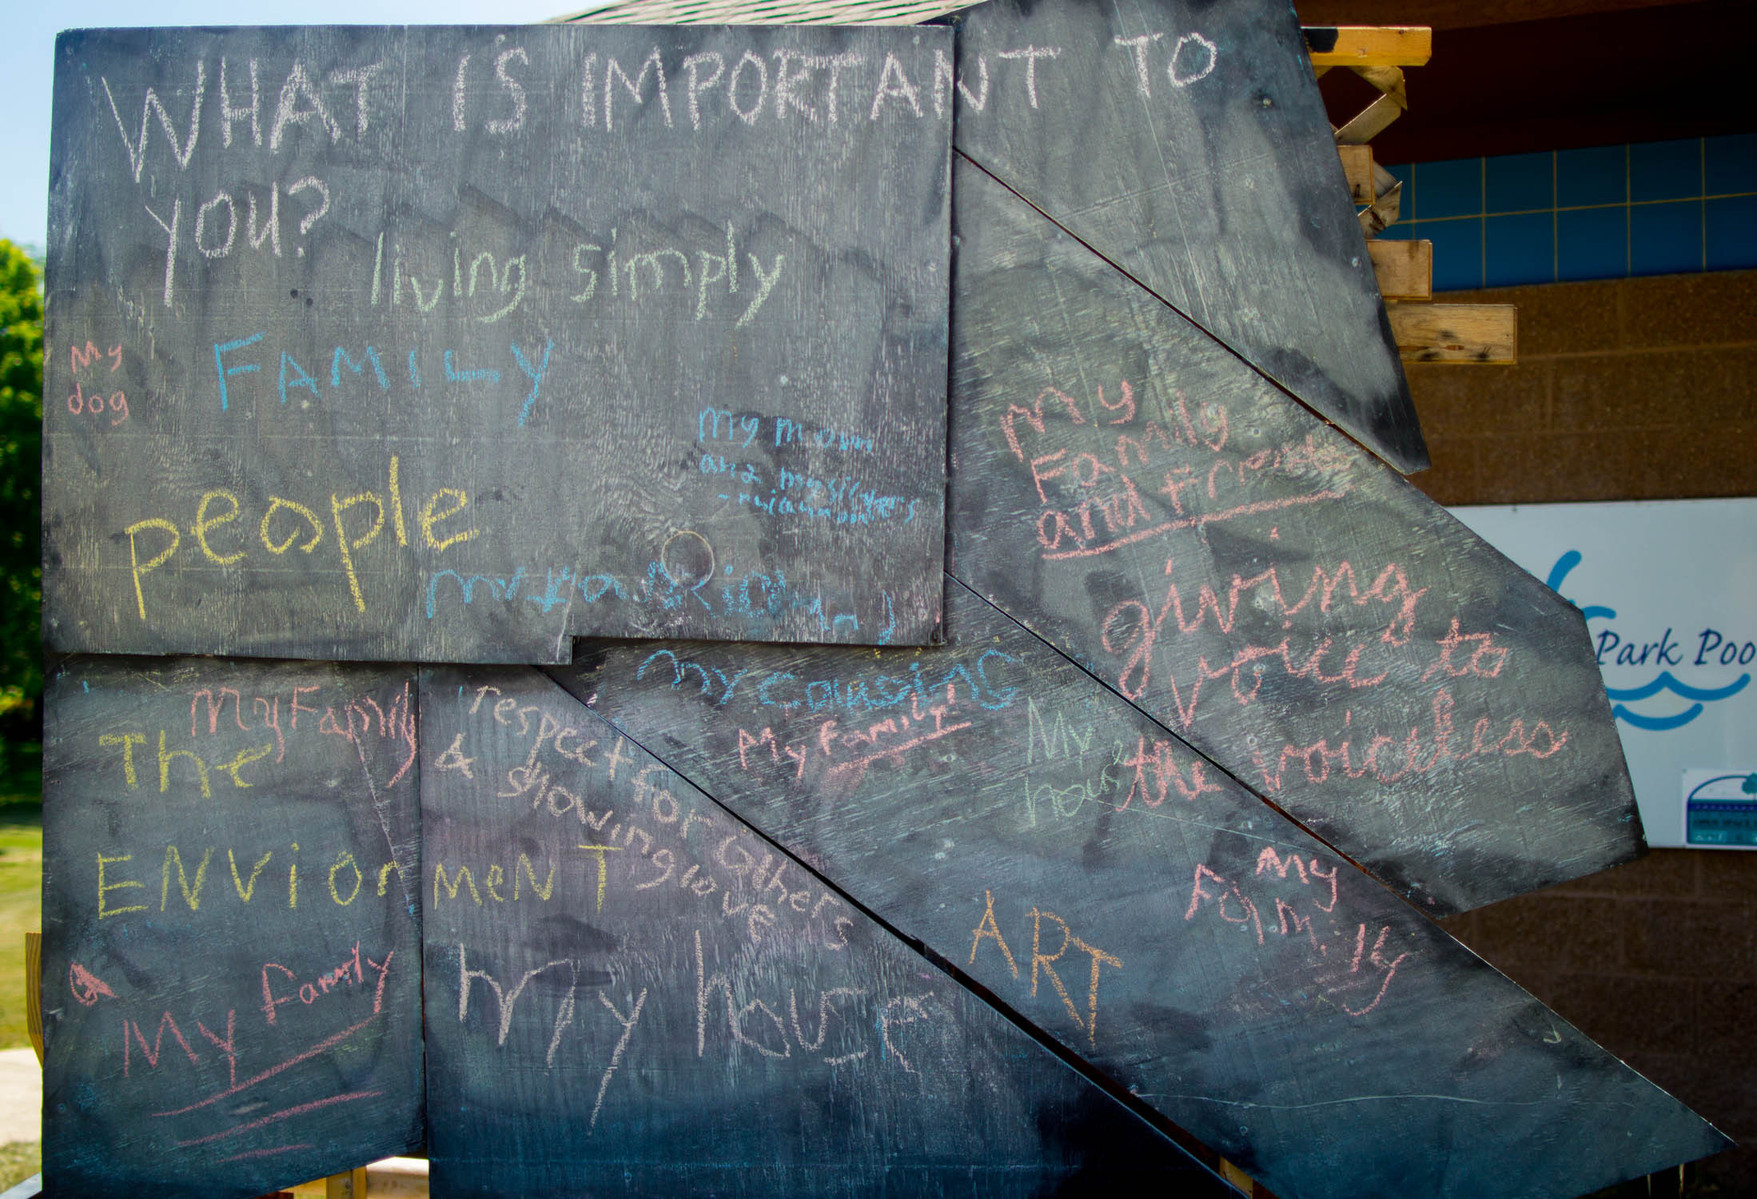 WHAT IS IMPORTANT TO
YOU?
living simply
My
dog
FAMILY
my mom
and my sisters
people
My
Family
and Friends
giving
voice to
the voiceless
my cousins
My Family!
My
house
My Family
The
ENVIORMENT
respect for others
& showing love
My
Family
ART
a
My family
my house
Park Poo